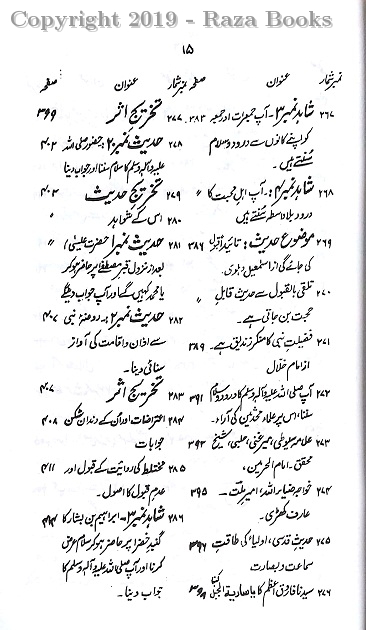 Copyright 2019 - Raza Books
۱۵
نمبر شمار عنوان صفحہ
۲۶۷ شاہد نمبر ۳ - آپ جمعرات اور جمعہ ۳۸۳
کو اپنے کانوں سے درود و سلام
سُنتے ہیں۔
۲۶۸ شاہد نمبر ۴: آپ اہل محبت کا "
درود بلا واسطہ سُنتے ہیں
۲۶۹ موضوع حدیث: تائیداً ۳۸۶
کی جائے گی از اسمٰعیل دہلوی۔
۲۷۰ تلقی بالقبول سے حدیث قابلِ "
حجت بن جاتی ہے۔
۲۷۱ فضیلتِ نبی کا منکر زندیق ہے۔ ۳۸۹
از امام خلال
۲۷۲ آپ صلی اللہ علیہ وآلہ وسلم کا درود و سلام ۳۹۱
سننا، اس پر علماء محدثین کی آراء۔
۲۷۳ علامہ سیوطی، میر غنی، حلبی، شیخ ۳۹۳
محقق۔ امام الحرمین،
۲۷۴ خواجہ ضیاء اللہ، امیر ملت۔ ۳۹۵
عارف کھڑی۔
۲۷۵ حدیثِ قدسی، اولیاء کی طاقتِ ۳۹۶
سماعت و بصارت
۲۷۶ سیدنا فاروق اعظم کا یا ساریۃ الجبل کہنا ۳۹۸
نمبر شمار عنوان صفحہ
۲۷۷ تخریج اثر ۳۹۹
۲۷۸ حدیث نمبر ۲: حضور صلی اللہ ۴۰۲
علیہ وآلہ وسلم کا سلام سننا اور جواب دینا
۲۷۹ تخریج حدیث ۴۰۲
۲۸۰ اس کے شواہد "
۲۸۱ حدیث نمبر ۱ (حضرت عیسیٰ) "
بعد از نزول قبر مصطفےٰ پر حاضر ہو کر
یا محمد کہیں گے اور آپ جواب دینگے
۲۸۲ حدیث نمبر ۲: روضۂ نبی ۴۰۷
سے اذان و اقامت کی آواز
سنائی دینا۔
۲۸۳ تخریج اثر ۴۰۷
۲۸۴ اعتراضات اور اُن کے دندان شکن ۴۰۸
جوابات
۲۸۵ مختلط کی روائیت کے قبول اور ۴۱۱
عدم قبول کا اصول۔
۲۸۶ شاہد نمبر ۳۔ ابراہیم بن بشار کا ۴۱۴
گنبدِ خضرا پر حاضر ہو کر سلام عرض
کرنا اور آپ صلی اللہ علیہ وآلہ وسلم کا
جواب دینا۔